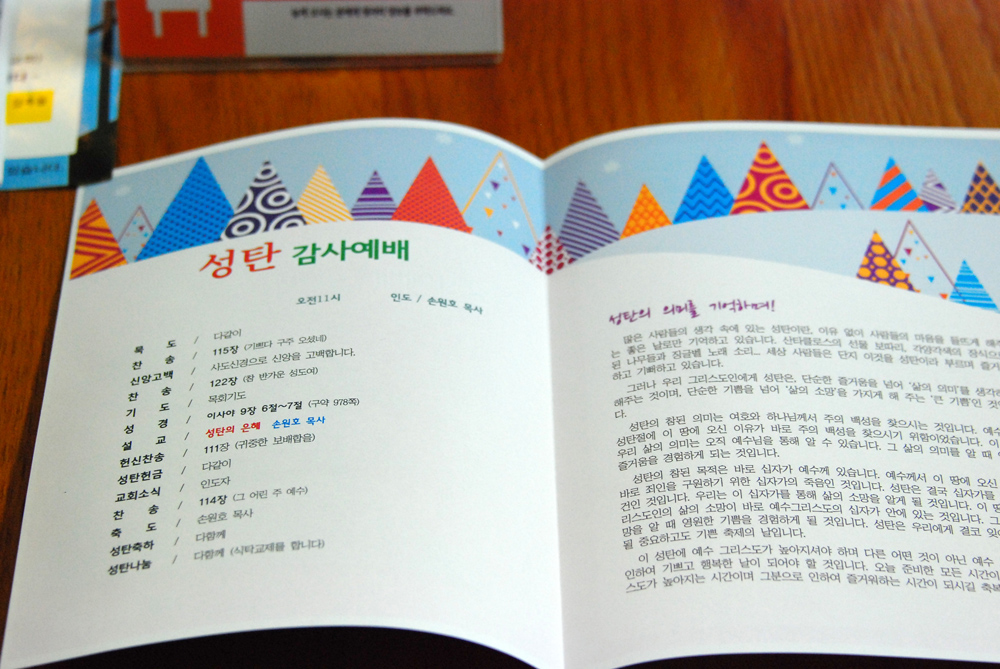 있습니다.
성탄 감사예배
오전11시 인도 / 손원호 목사
묵 도 / 다같이
찬 송 / 115장 (기쁘다 구주 오셨네)
신앙고백 / 사도신경으로 신앙을 고백합니다.
찬 송 / 122장 (참 반가운 성도여)
기 도 / 목회기도
성 경 / 이사야 9장 6절~7절 (구약 978쪽)
설 교 / 성탄의 은혜 손원호 목사
헌신찬송 / 111장 (귀중한 보배합을)
성탄헌금 / 다같이
교회소식 / 인도자
찬 송 / 114장 (그 어린 주 예수)
축 도 / 손원호 목사
성탄축하 / 다함께
성탄나눔 / 다함께 (식탁교제를 합니다)
성탄의 의미를 기억하며!
많은 사람들의 생각 속에 있는 성탄이란, 이유 없이 사람들의 마음을 들뜨게 해주
는 좋은 날로만 기억하고 있습니다. 산타클로스의 선물 보따리, 각양각색의 장식으
된 나무들과 징글벨 노래 소리... 세상 사람들은 단지 이것을 성탄이라 부르며 즐거
하고 기뻐하고 있습니다.
그러나 우리 그리스도인에게 성탄은, 단순한 즐거움을 넘어 '삶의 의미'를 생각하
해주는 것이며, 단순한 기쁨을 넘어 '삶의 소망'을 가지게 해 주는 '큰 기쁨'인 것
다.
성탄의 참된 의미는 여호와 하나님께서 주의 백성을 찾으시는 것입니다. 예수
성탄절에 이 땅에 오신 이유가 바로 주의 백성을 찾으시기 위함이었습니다. 이
우리 삶의 의미는 오직 예수님을 통해 알 수 있습니다. 그 삶의 의미를 알 때
즐거움을 경험하게 되는 것입니다.
성탄의 참된 목적은 바로 십자가 예수께 있습니다. 예수께서 이 땅에 오신
바로 죄인을 구원하기 위한 십자가의 죽음인 것입니다. 성탄은 결국 십자가를
건인 것입니다. 우리는 이 십자가를 통해 삶의 소망을 알게 될 것입니다. 이 땅
리스도인의 삶의 소망이 바로 예수그리스도의 십자가 안에 있는 것입니다. 그
망을 알 때 영원한 기쁨을 경험하게 될 것입니다. 성탄은 우리에게 결코 잊
될 중요하고도 기쁜 축제의 날입니다.
이 성탄에 예수 그리스도가 높아지셔야 하며 다른 어떤 것이 아닌 예수
인하여 기쁘고 행복한 날이 되어야 할 것입니다. 오늘 준비한 모든 시간이
스도가 높아지는 시간이며 그분으로 인하여 즐거워하는 시간이 되시길 축복